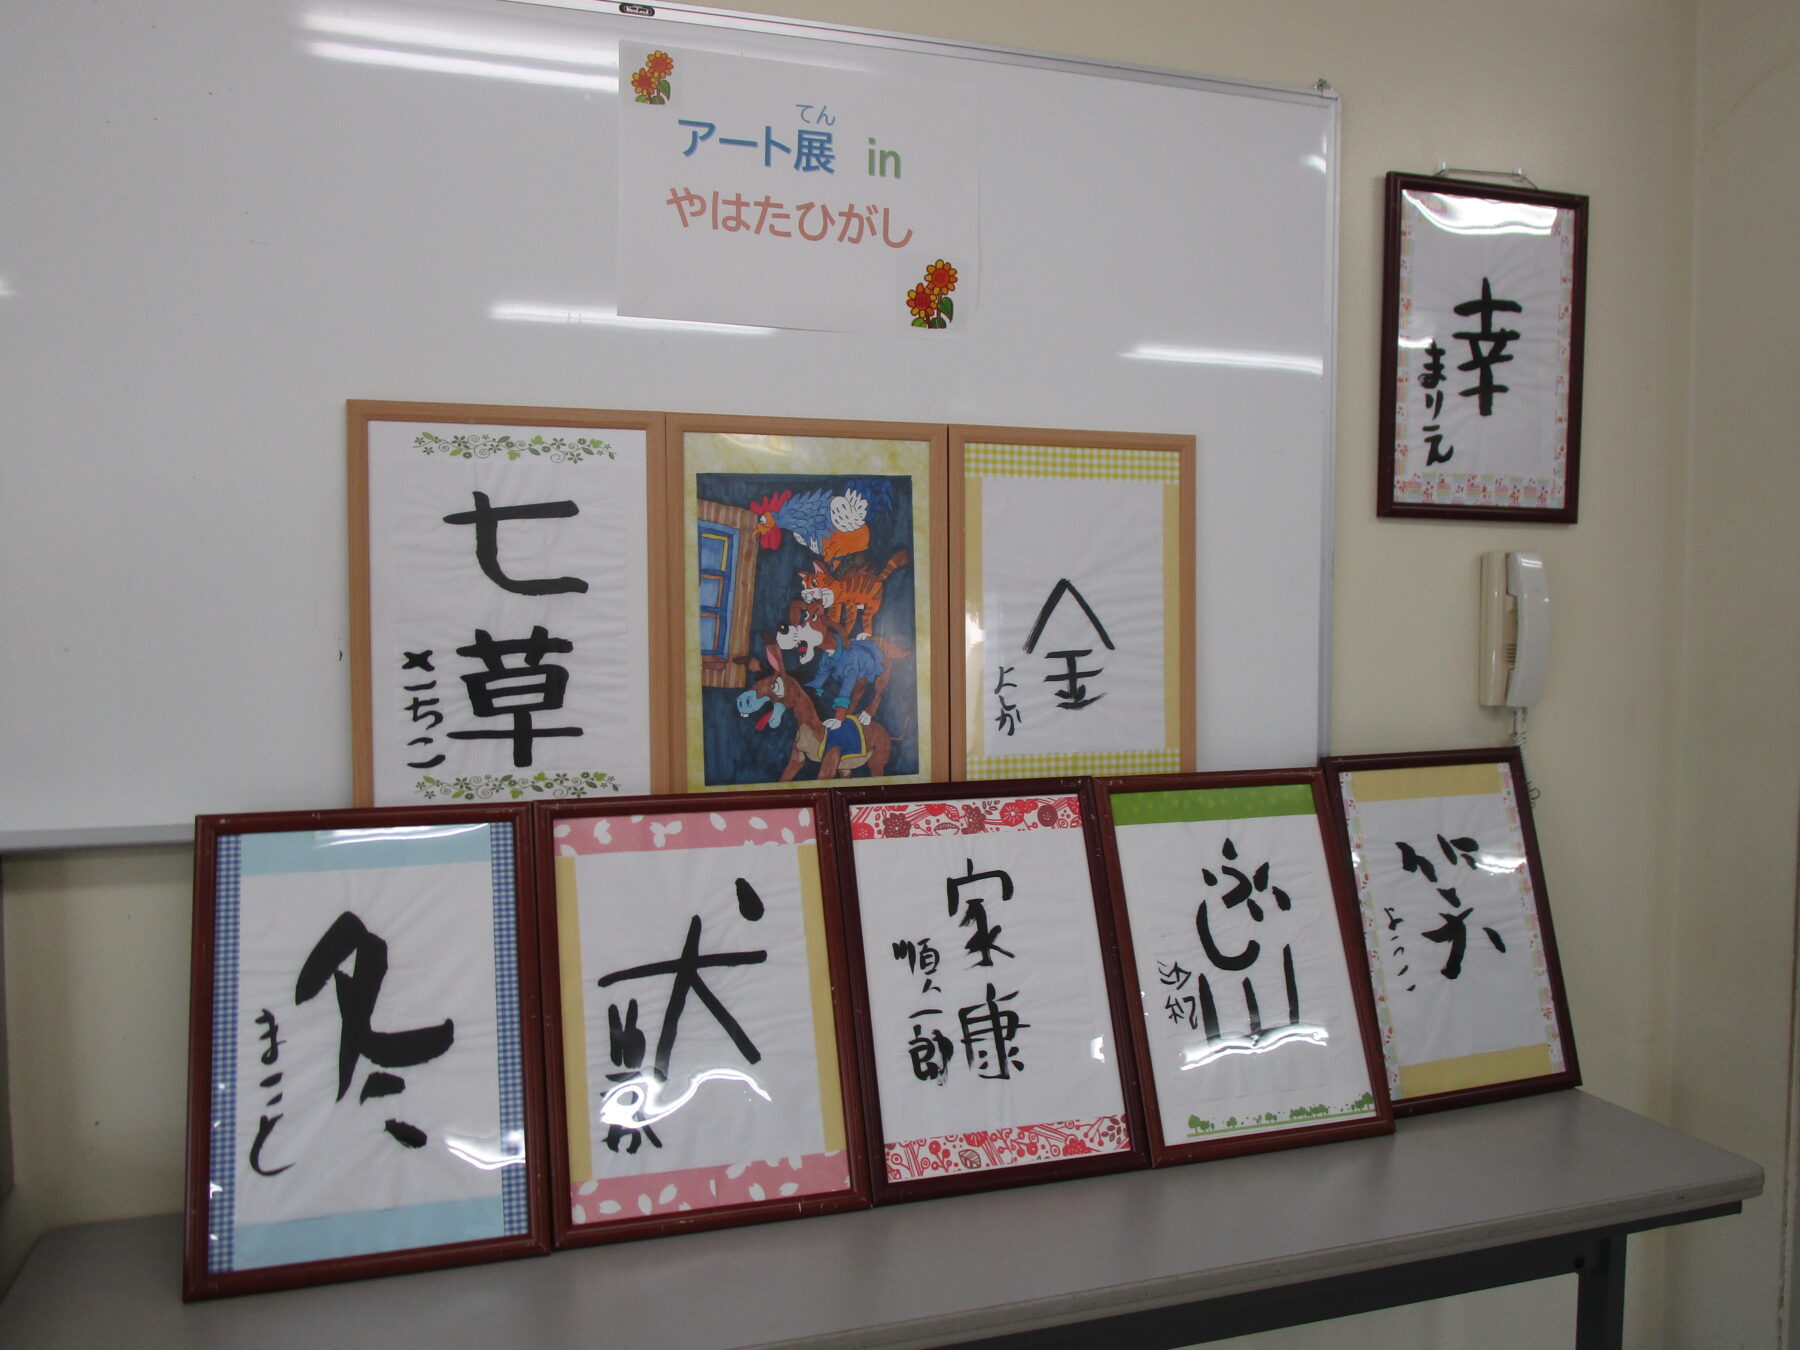 てん
アート展 in
やはたひがし
幸
まりえ
七草
さちこ
金
よしか
冬
まこと
犬
家康
順一郎
山
笑